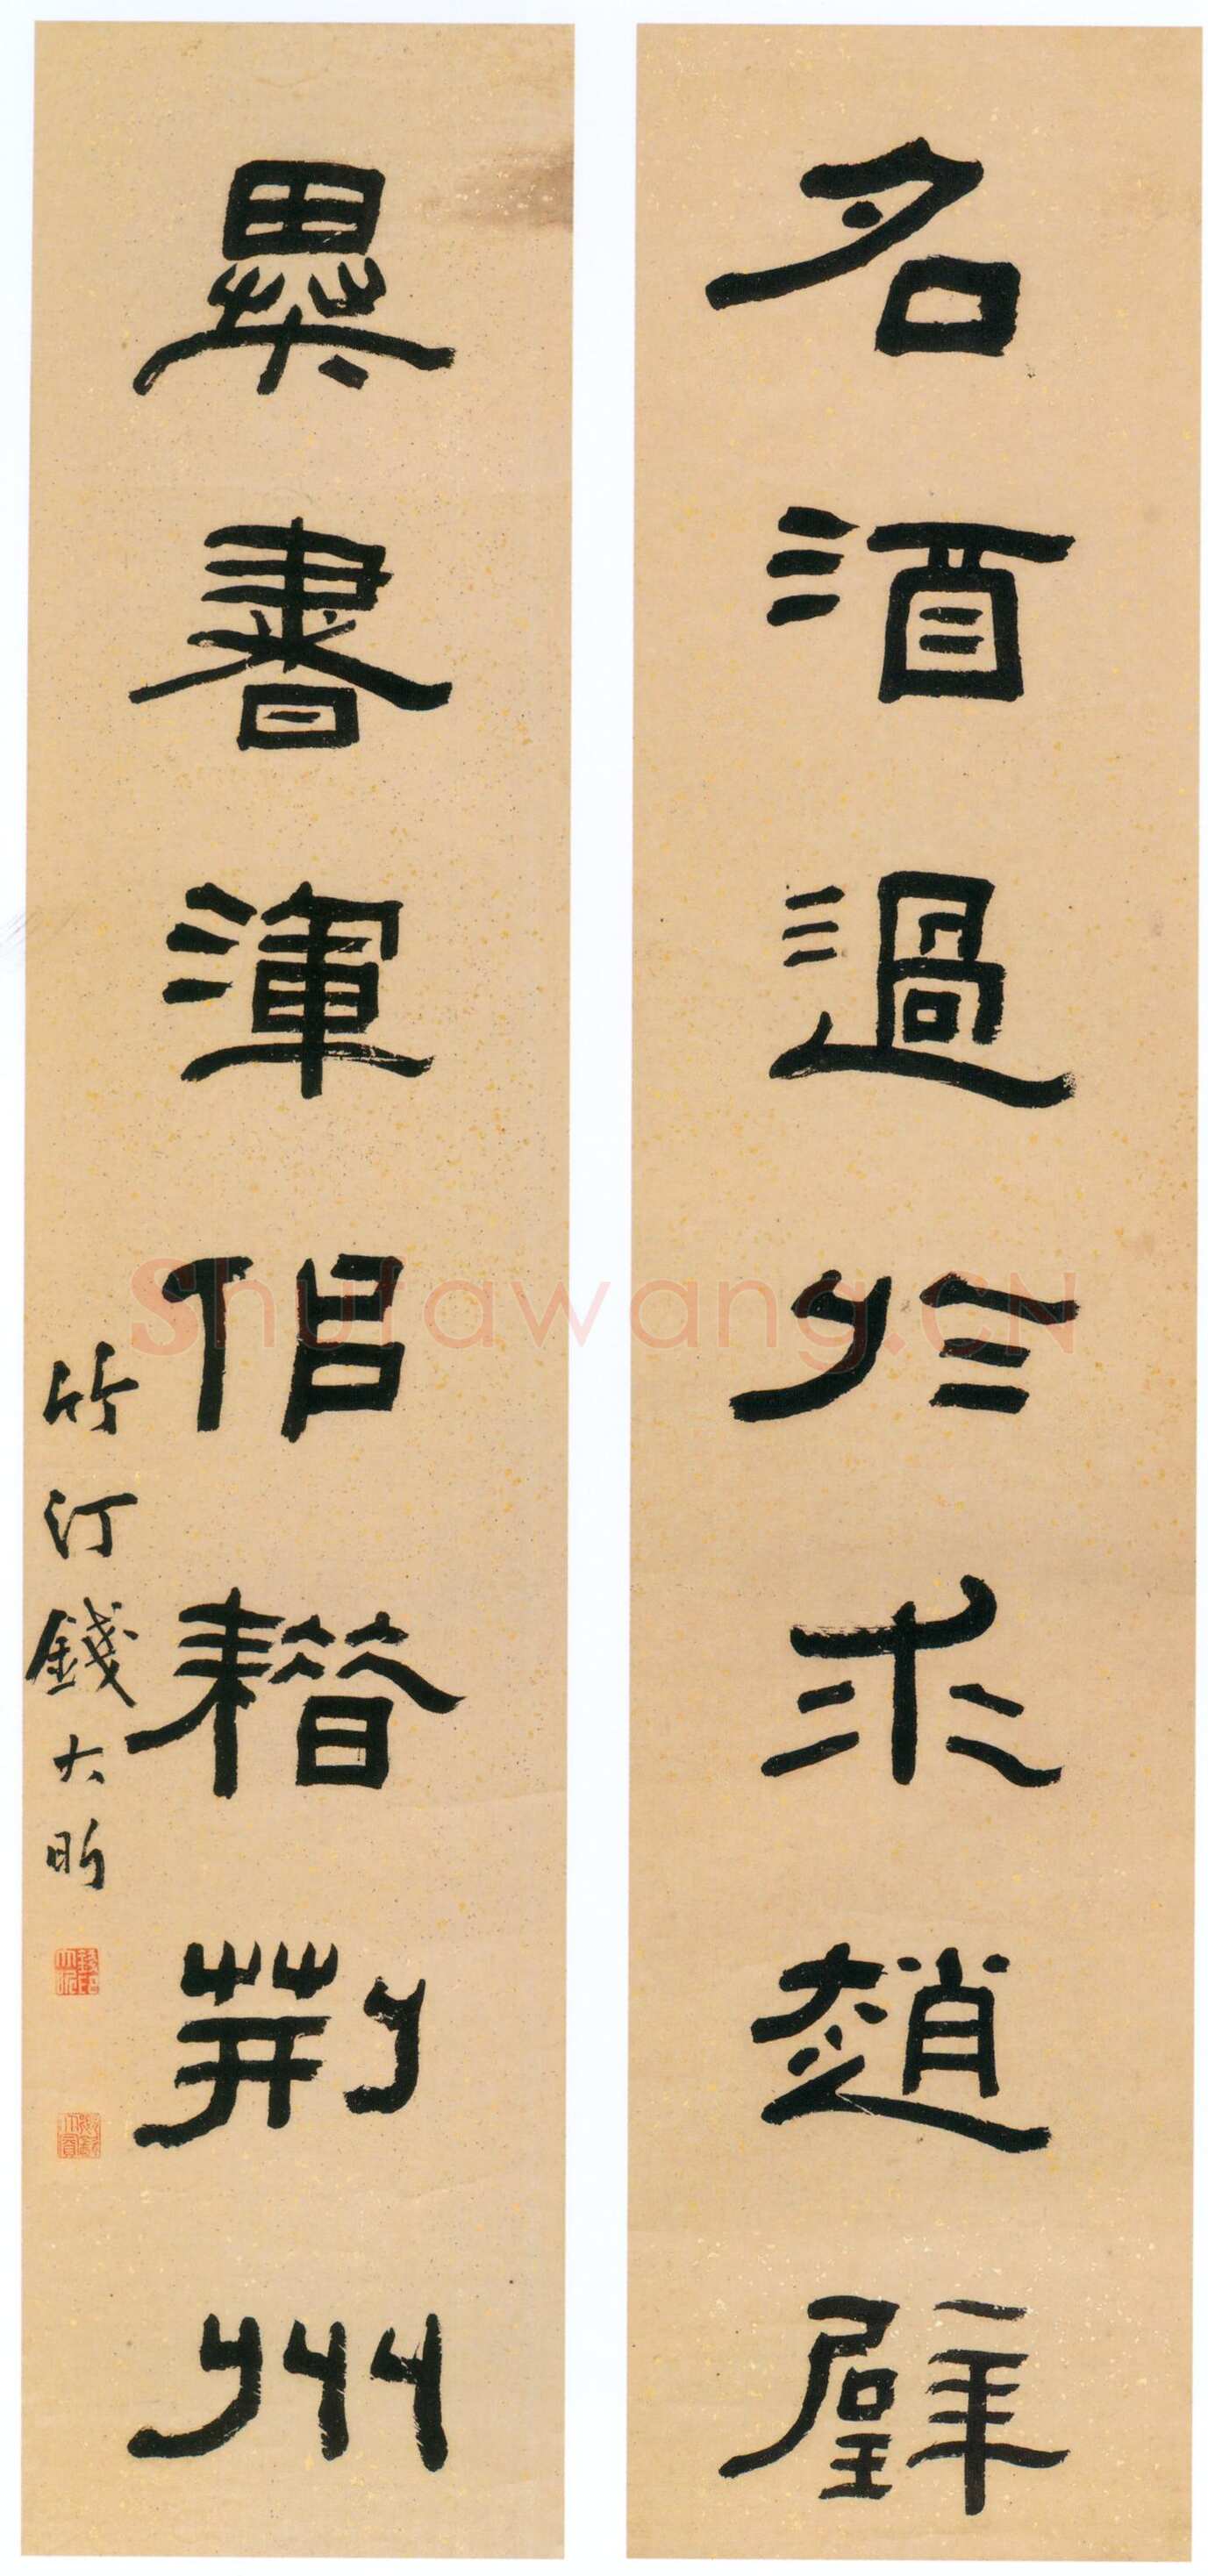 名酒過於求趙璧
異書渾佀耤荊州
竹汀錢大昕
Shufawang.CN